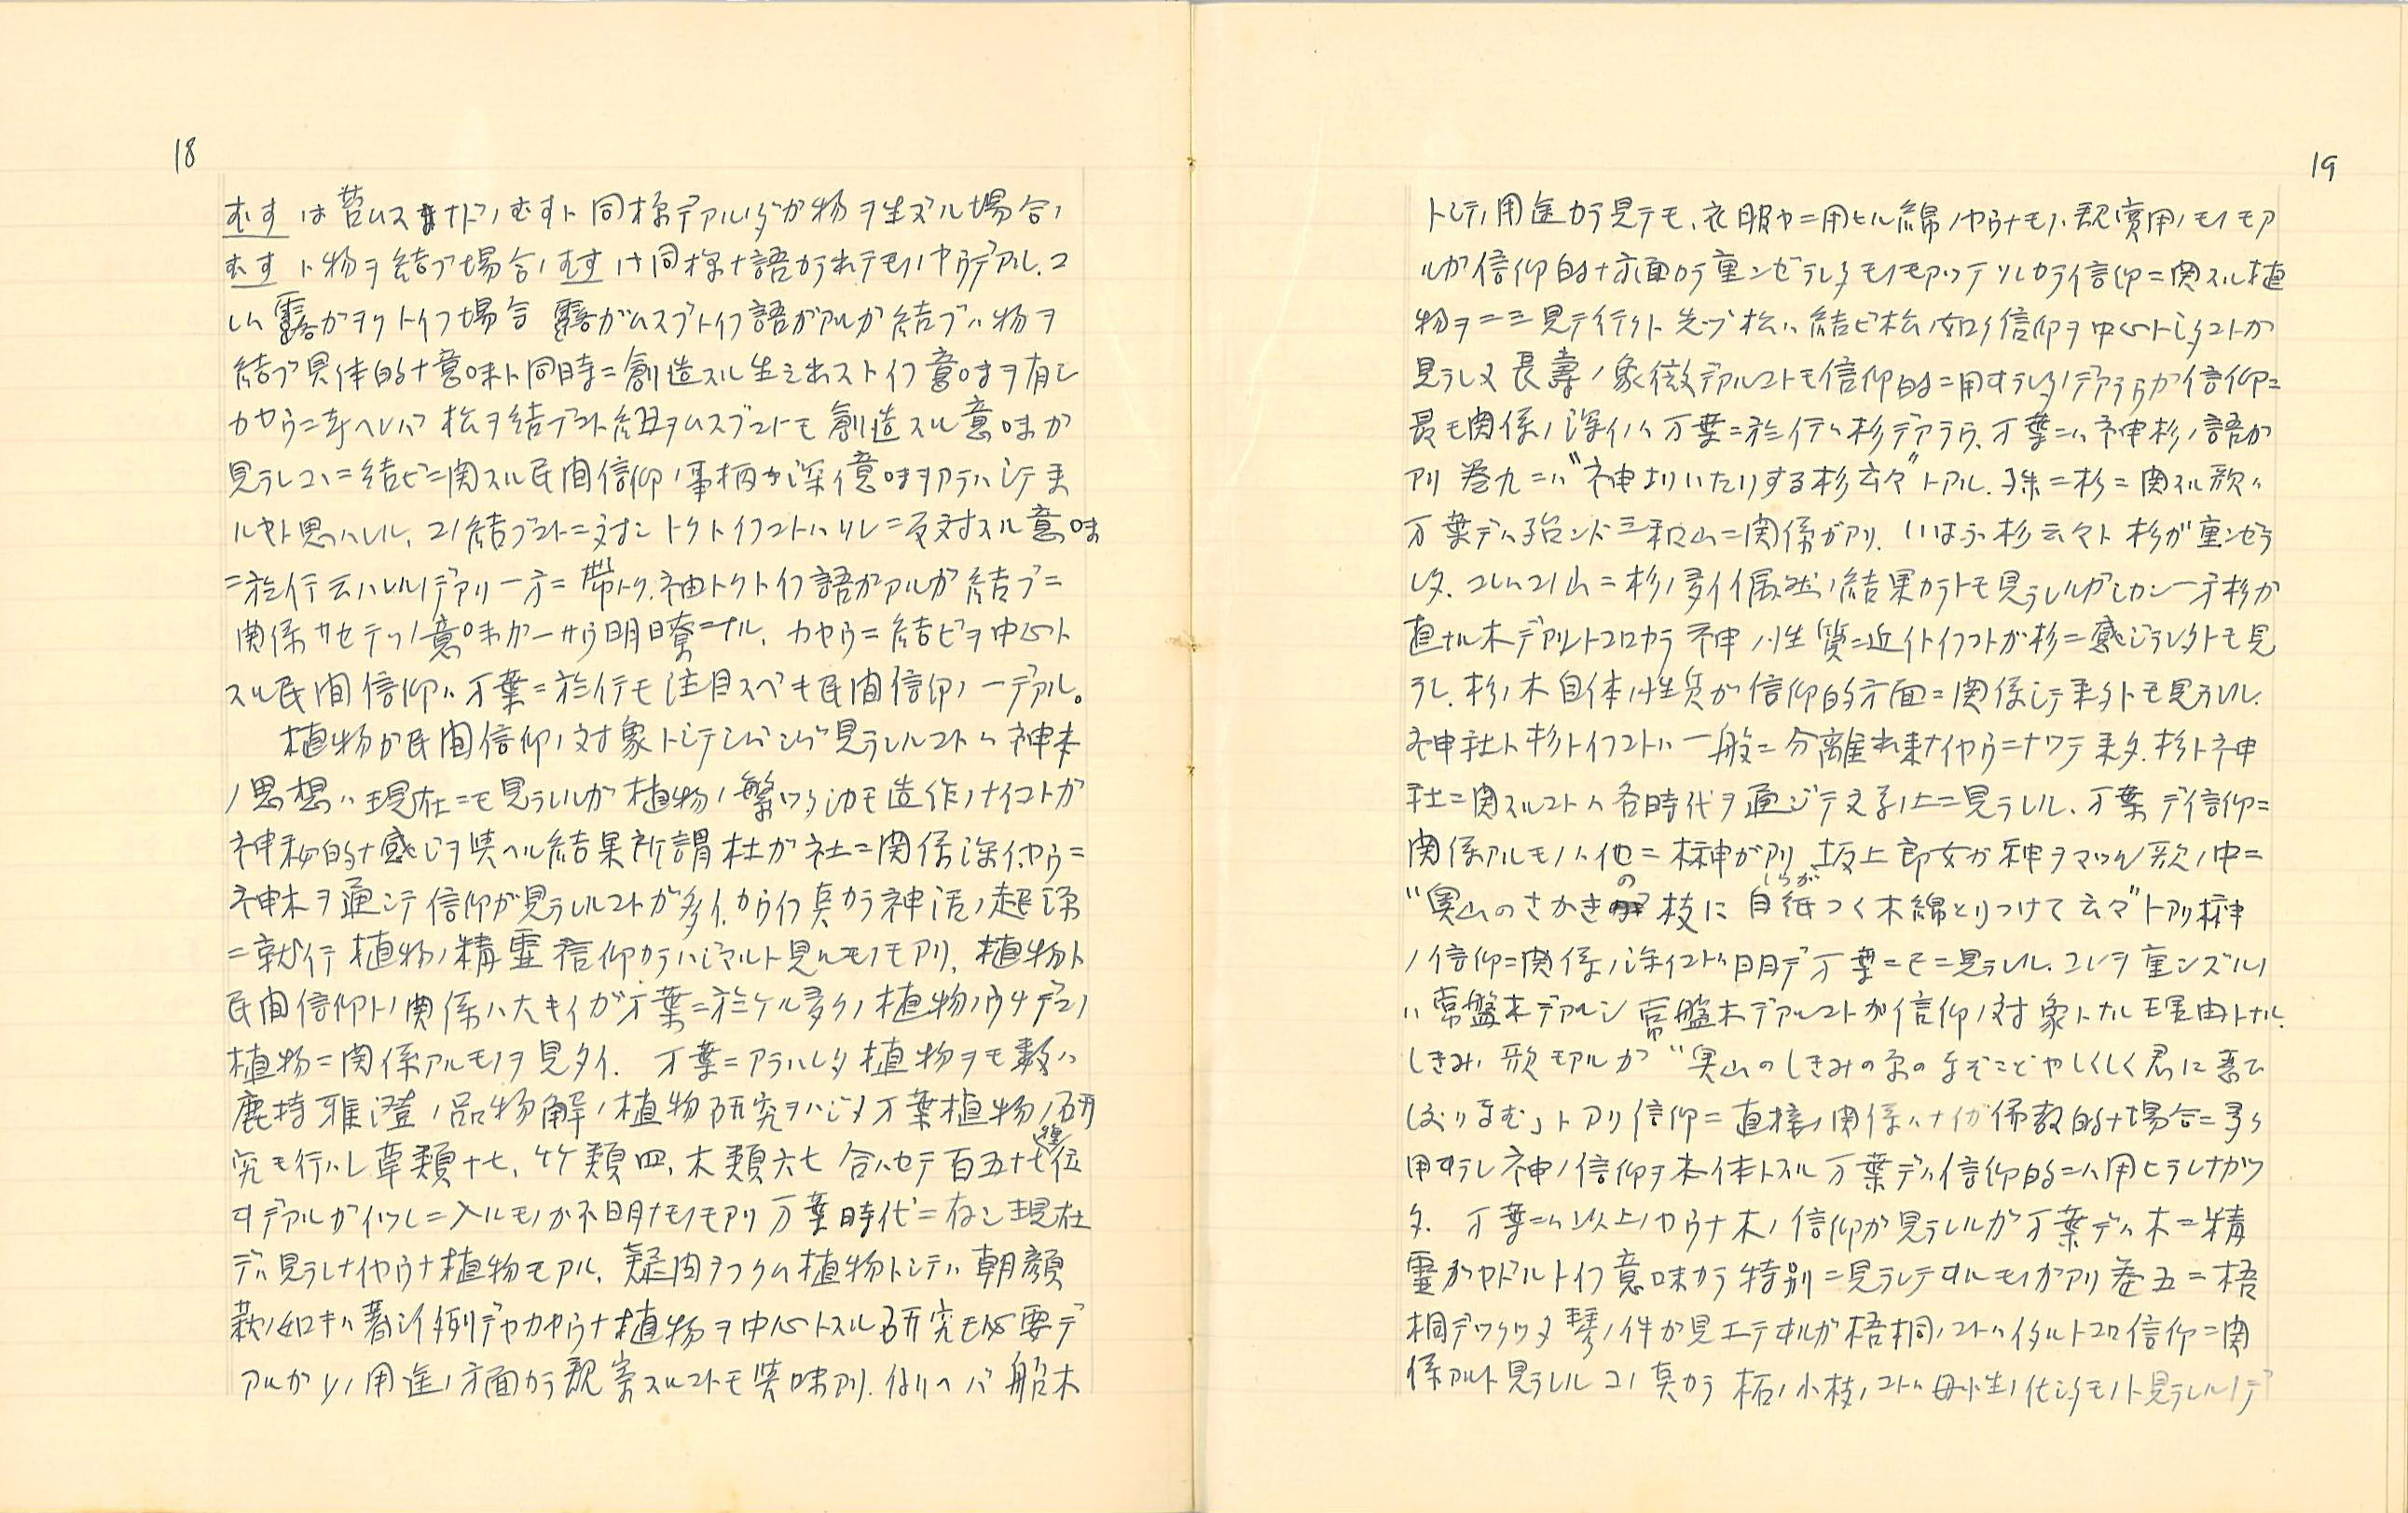 18
むす は 苔ムスナドノむすト同様デアルガ物ヲ生ズル場合ノ
むす ト物ヲ結ブ場合ノむすハ同様ナ語カラ出テキルヤウデアル.コ
レハ露ガヲクトイフ場合 露ガムスブトイフ語ガアルガ結ブハ物ヲ
結ブ具体的ナ意味ト同時ニ創造スル生ミ出ストイフ意味ヲ有シ
カヤウニ考ヘレバ松ヲ結ブコト紐ヲムスブコトモ創造スル意味ガ
見ラレコヽニ結ビニ関スル民間信仰ノ事柄ガ深イ意味ヲアラハシテ来
ルヤト思ハレル.コノ結ブコトニ対シトクトイフコトハソレニ反対スル意味
ニ於イテ云ハレルノデアリ一方ニ帯トク.袖トクトイフ語ガアルガ結ブニ
関係サセテソノ意味ガ一サウ明瞭ニナル. カヤウニ結ビヲ中心ト
スル民間信仰ハ万葉ニ於イテモ注目スベキ民間信仰ノ一デアル。
植物ガ民間信仰ノ対象トシテシバシバ見ラレルコトハ神木
ノ思想ハ現在ニモ見ラレルガ植物ノ繁ワタ 造作ノナイコトガ
神秘的ナ感ジヲ与ヘル結果所謂杜ガ社ニ関係深イヤウニ
神木ヲ通シテ信仰ガ見ラレルコトガ多イ.カウイフ点カラ神話ノ起源
ニ就イテ植物ノ精霊信仰カラハジマルト見ルモノモアリ.植物ト
民間信仰トノ関係ハ大キイガ万葉ニ於ケル多クノ植物ノウチデコノ
植物ニ関係アルモノヲ見タイ. 万葉ニアラハレタ植物ヲモ数ハ
鹿持雅澄ノ品物解ノ植物研究ヲハジメ万葉植物ノ研
究モ行ハレ草類十七、竹類四、木類六七 合ハセテ百五十七種位
オデアルガイヅレニ入ルモノカ不明ナモノモアリ万葉時代ニ存シ現在
デハ見ラレナイヤウナ植物モアル.疑問ヲフクム植物トシテハ朝顔
萩ノ如キハ著シイ例デカヤウナ植物ヲ中心トスル研究モ必要デ
アルガソノ用途ノ方面カラ観察スルコトモ興味アリ.例ヘバ船木
19
トシテノ用途カラ見テモ、衣服ヤニ用ヒル綿ノヤウナモノハ観賞用ノモノモア
ルガ信仰的ナ方面カラ重ンゼラレタモノモアツテソレカラ信仰ニ関スル植
物ヲ二三見テ行クト先ヅ松ハ結ビ松ノ如ク信仰ヲ中心トシタコトガ
見ラレ又長寿ノ象徴デアルコトモ信仰的ニ用ヰラレタノデアラウガ信仰ニ
最モ関係ノ深イノハ万葉ニ於イテハ杉デアラウ.万葉ニハ神杉ノ語ガ
アリ 巻九ニハ"神よりいたりする杉云々"トアル.殊ニ杉ニ関スル歌ハ
万葉デハ殆ンド三和山ニ関係ガアリ. いはふ杉云々ト杉ガ重ンゼラ
レタ.コレハコノ山ニ杉ノ多イ偶然ノ結果カラトモ見ラレルガシカシ一方杉ガ
直ナル木デアルトコロカラ神ノ性質ニ近イトイフコトガ杉ニ感ジラレタトモ見
ラレ.杉ノ木自体ノ性質ガ信仰的方面ニ関係シテ来タトモ見ラレル.
神社ト杉トイフコトハ一般ニ分離出来ナイヤウニナツテ来タ.杉ト神
社ニ関スルコトハ各時代ヲ通ジテ文学ノ上ニ見ラレル.万葉デ信仰ニ
関係アルモノハ他ニ榊ガアリ 坂上郎女ガ神ヲマツル歌ノ中ニ
"奥山のさかきの枝に白紙(しらが)つく木綿とりつけて云々"トアリ榊
ノ信仰ニ関係ノ深イコトハ明デ万葉ニモニ見ラレル.コレヲ重ンズルノ
ハ常盤木デアルシ常盤木デアルコトガ信仰ノ対象トナル理由トナル.
しきみノ歌モアルガ"奥山のしきみの のなぞごとやしくしく君に恋ひ
わたりなむ」トアリ信仰ニ直接ノ関係ハナイガ佛教的ナ場合ニ多ク
用ヰラレ神ノ信仰ヲ本体トスル万葉デハ信仰的ニハ用ヒラレナカツ
タ. 万葉ニハ以上ノヤウナ木ノ信仰ガ見ラレルガ万葉デハ木ニ精
霊ガヤドルトイフ意味カラ特別ニ見ラレテヰルモノガアリ巻五ニ梧
桐デツクツタ琴ノ件ガ見エテヰルガ梧桐ノコトハイタルトコロ信仰ニ関
係アルト見ラレルコノ点カラ柘ノ小枝ノコトハ女性ノ化シタモノト見ラレルノデ